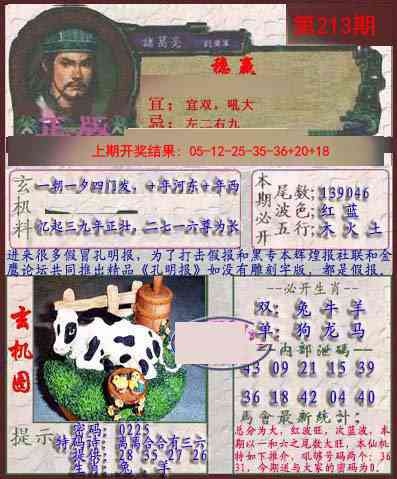 第213期
諸葛亮
稳赢
宜：宜双，吼大
忌：左二右九
正版
上期开奖结果：05-12-25-35-36+20+18
玄机料
一朝一夕四门发，十年河东十年西
忆起三九年正壮，二七一六尊为长
本期必开
尾数;139046
波色;红 蓝
五行;木 火 土
进来很多假冒孔明报，为了打击假报和黑专本辉煌报社联和金
鹰论坛共同推出精品《孔明报》如没有雕刻字版，都是假报。
玄机图
--必开生肖--
双：兔牛羊
单：狗龙马
内部泄码--
43 09 21 15 39
36 18 42 04 40
馬會最新統計：
总分为大，红波旺，次蓝波，本
期以一和六之尾数大旺，本仙机
特如下推介，吼够号码两个：36
31，今期送与大家的密码为0。
提示
密码：0225
特码诗：离离合合有三六
提供：28 35 27 26
生肖：兔、羊